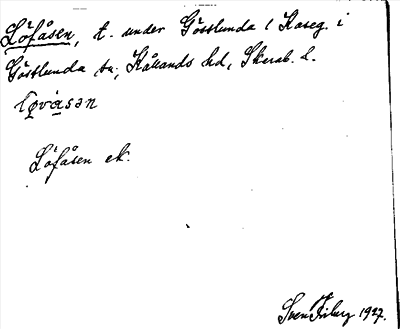 Löfåsen, t. under Göstlunda 1 Kaseg. i
Göstlunda sn, Kållands hd, Skarab. l.
Löfåsen ek.
Sven Friberg 1927.